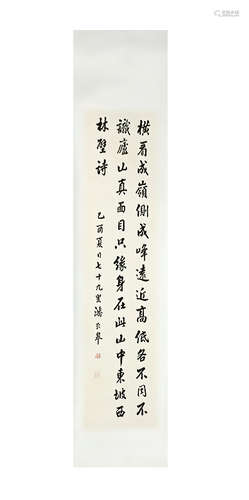 橫看成嶺側成峰遠近高低各不同不
識廬山真面目只緣身在此山中東坡西
林壁詩
乙酉夏日七十九叟潘齡皋